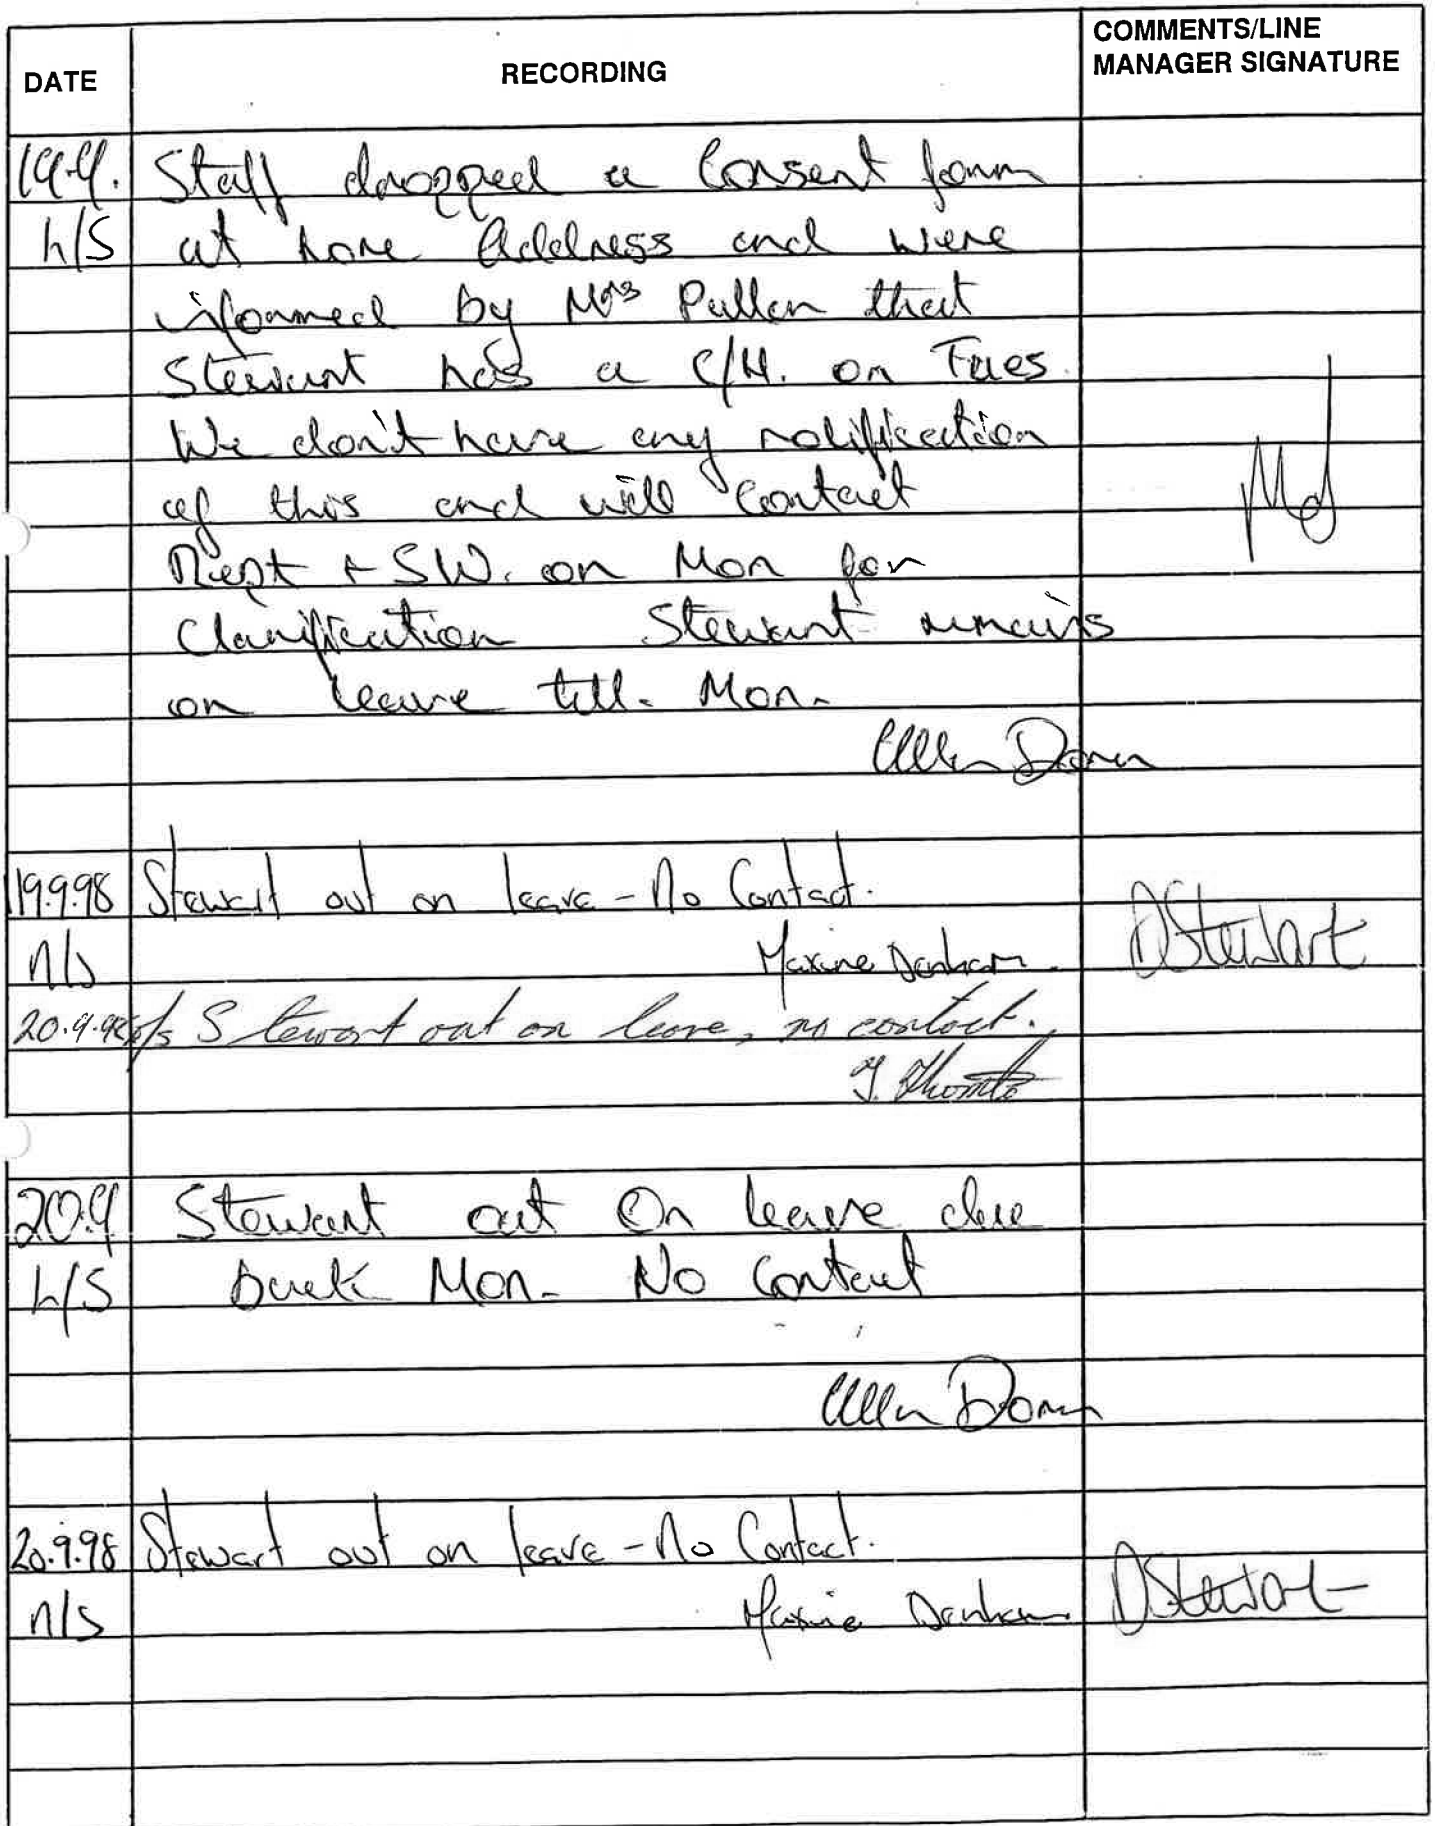 DATE RECORDING COMMENTS/LINE MANAGER SIGNATURE
19.9. Staff dropped a Consent form
L/S at home Address and were
informed by Mrs Pullen that
Stewart has a C/H. on Tues.
We don't have any notification
of this and will contact
Rept + SW. on Mon for
Clarification Stewart remains
on leave till. Mon.
Allen Doran
19.9.98 Stewart out on leave - No Contact.
n/s Maxine Denham DStewart
20.9.98 Stewart out on leave, no contact.
20.9 Stewart out On leave due
L/S back Mon. No Contact
Allen Doran
20.9.98 Stewart out on leave - No Contact.
n/s Maxine Denham DStewart